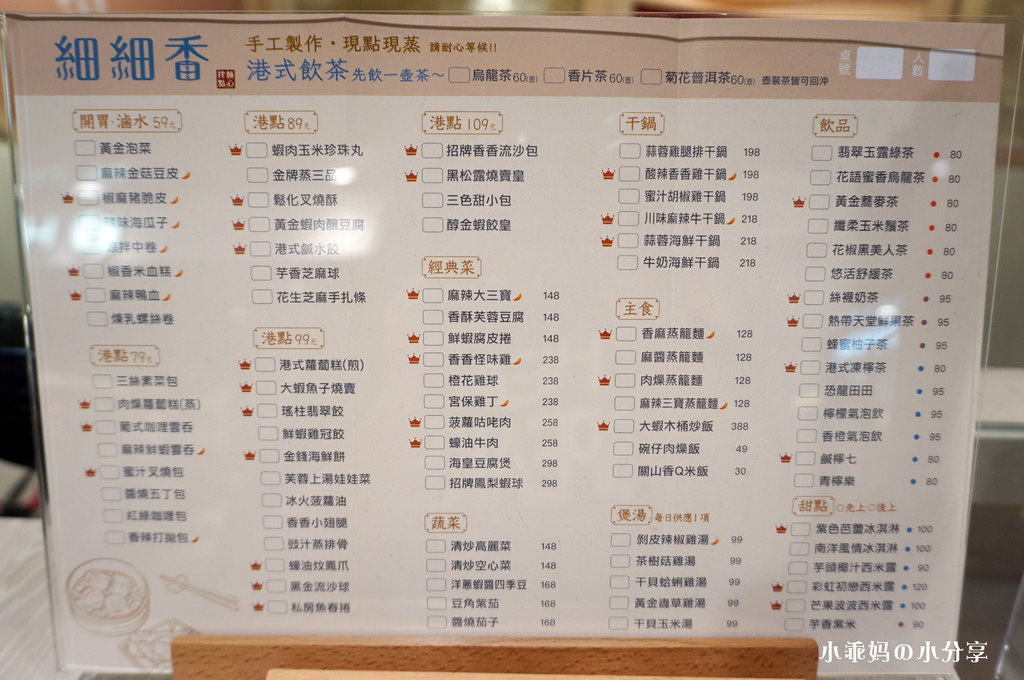 細細香
拌麵
點心
手工製作・現點現蒸 請耐心等候!!
港式飲茶 先飲一壺茶～ 烏龍茶60(壺) 香片茶60(壺) 菊花普洱茶60(壺) 壺裝茶皆可回沖
桌號
人數
開胃・滷水 59元
黃金泡菜
麻辣金菇豆皮
椒麻豬脆皮
海瓜子
涼拌中卷
椒香米血糕
麻辣鴨血
煉乳螺絲卷
港點 79元
三絲素菜包
肉燥蘿蔔糕(蒸)
葡式咖哩雲吞
麻辣鮮蝦雲吞
蜜汁叉燒包
醬燒五丁包
紅綠咖哩包
香辣打拋包
港點 89元
蝦肉玉米珍珠丸
金牌蒸三品
鬆化叉燒酥
黃金蝦肉釀豆腐
港式鹹水餃
芋香芝麻球
花生芝麻手扎條
港點 99元
港式蘿蔔糕(煎)
大蝦魚子燒賣
瑤柱翡翠餃
鮮蝦雞冠餃
金錢海鮮餅
芙蓉上湯娃娃菜
冰火菠蘿油
香香小翅腿
豉汁蒸排骨
蠔油炆鳳爪
黑金流沙球
私房魚春捲
港點 109元
招牌香香流沙包
黑松露燒賣皇
三色甜小包
醇金蝦餃皇
經典菜
麻辣大三寶 148
香酥芙蓉豆腐 148
鮮蝦腐皮捲 148
香香怪味雞 238
橙花雞球 238
宮保雞丁 238
菠蘿咕咾肉 258
蠔油牛肉 258
海皇豆腐煲 298
招牌鳳梨蝦球 298
蔬菜
清炒高麗菜 148
清炒空心菜 148
洋蔥蝦醬四季豆 168
豆角紫茄 168
醬燒茄子 168
干鍋
蒜蓉雞腿排干鍋 198
酸辣香香雞干鍋 198
蜜汁胡椒雞干鍋 198
川味麻辣牛干鍋 218
蒜蓉海鮮干鍋 218
牛奶海鮮干鍋 218
主食
香麻蒸籠麵 128
麻醬蒸籠麵 128
肉燥蒸籠麵 128
麻辣三寶蒸籠麵 128
大蝦木桶炒飯 388
碗仔肉燥飯 49
關山香Q米飯 30
煲湯 每日供應1項
剝皮辣椒雞湯 99
茶樹菇雞湯 99
干貝蛤蜊雞湯 99
黃金蟲草雞湯 99
干貝玉米湯 99
飲品
翡翠玉露綠茶 80
花語蜜香烏龍茶 80
黃金蕎麥茶 80
纖柔玉米鬚茶 80
花椒黑美人茶 80
悠活舒緩茶 80
絲襪奶茶 95
熱帶天堂鮮果茶 95
蜂蜜柚子茶 95
港式凍檸茶 80
恐龍田田 95
檸檬氣泡飲 95
香橙氣泡飲 95
鹹檸七 80
青檸樂 80
甜點 ○先上○後上
紫色芭蕾冰淇淋 100
南洋風情冰淇淋 100
芋頭椰汁西米露 90
彩虹初戀西米露 120
芒果波波西米露 100
芋香紫米 90
小乖妈の小分享